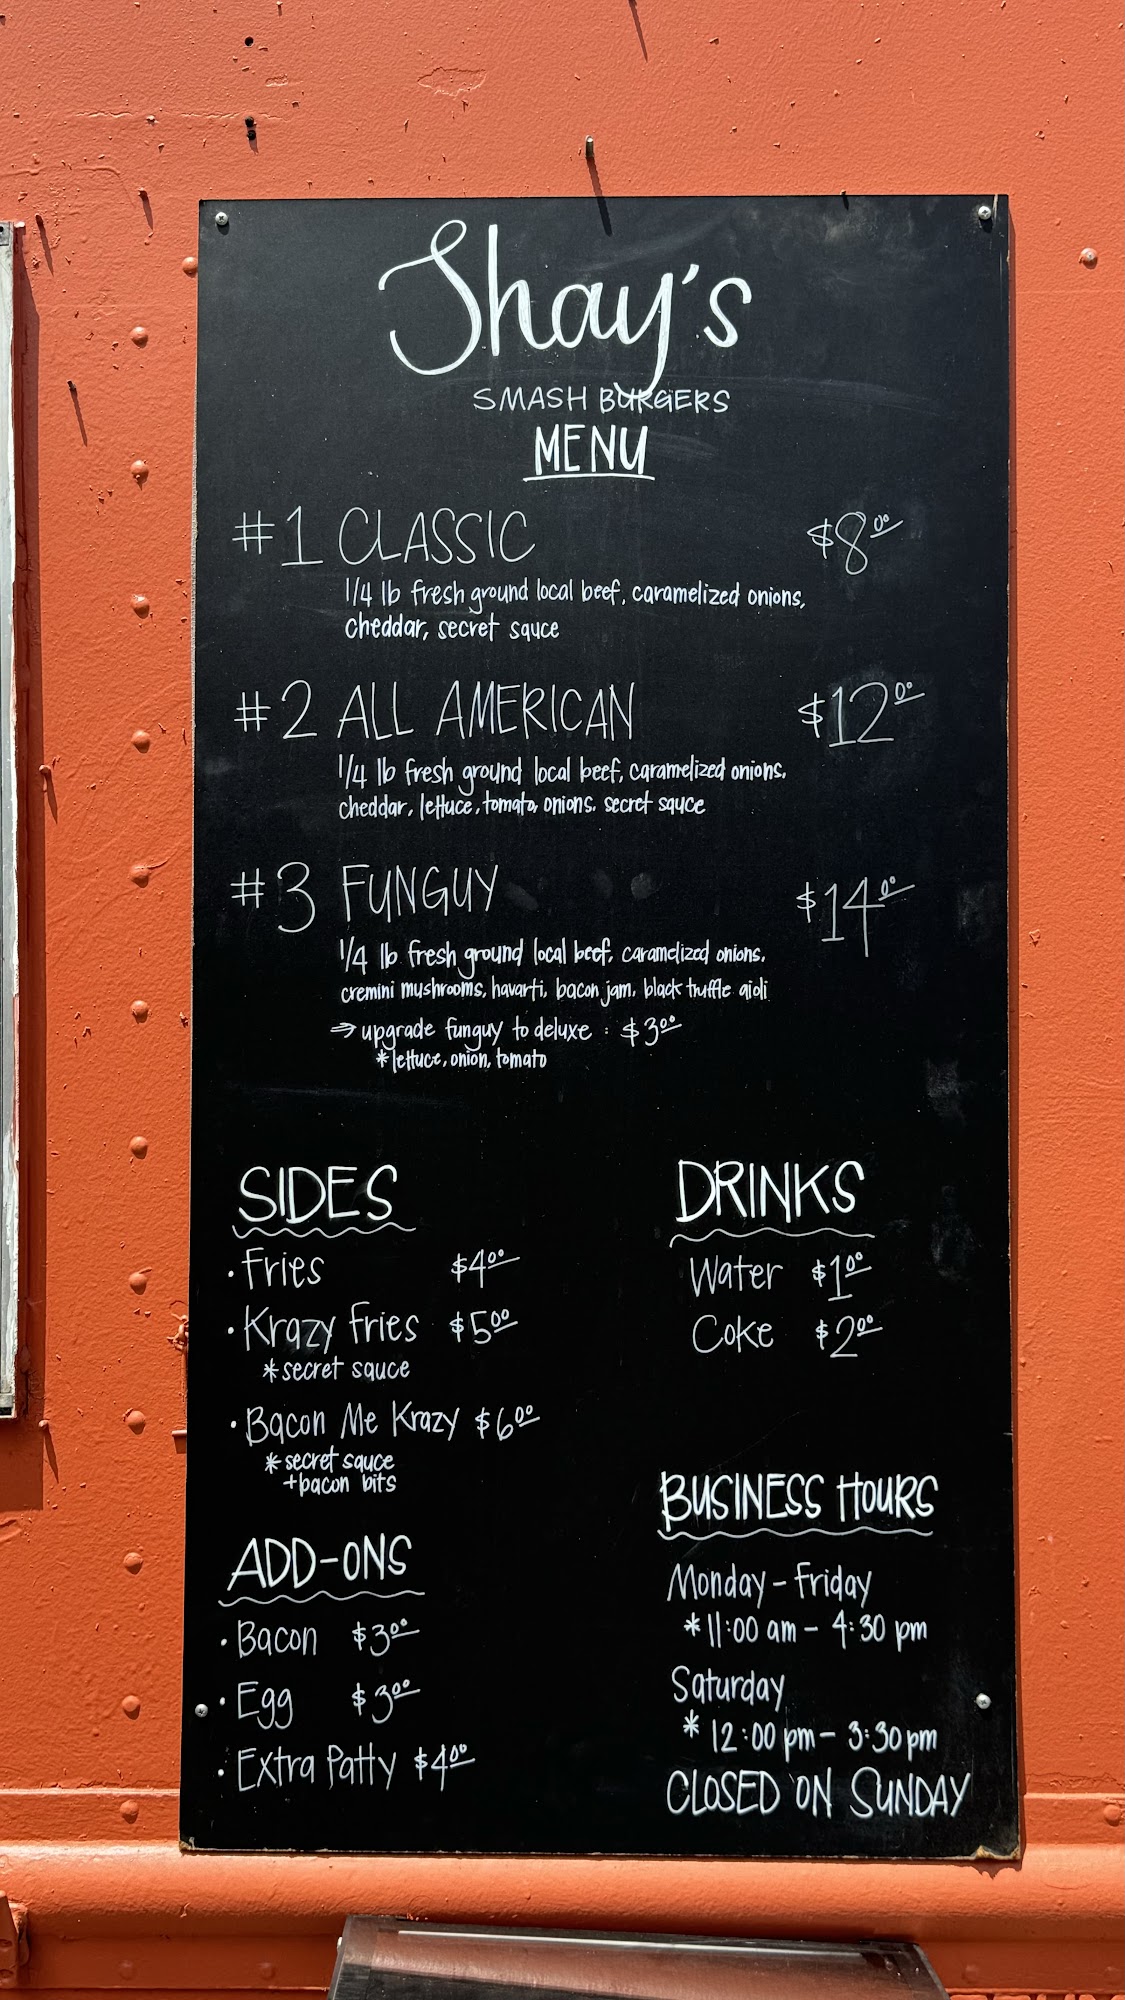 Shay's
SMASH BURGERS
MENU
#1 CLASSIC $8.00
1/4 lb fresh ground local beef, caramelized onions,
cheddar, secret sauce
#2 ALL AMERICAN $12.00
1/4 lb fresh ground local beef, caramelized onions,
cheddar, lettuce, tomato, onions, secret sauce
#3 FUNGUY $14.00
1/4 lb fresh ground local beef, caramelized onions,
cremini mushrooms, havarti, bacon jam, black truffle aioli
⇒ upgrade funguy to deluxe : $3.00
*lettuce, onion, tomato
SIDES
• Fries $4.00
• Krazy Fries $5.00
*secret sauce
• Bacon Me Krazy $6.00
*secret sauce
+bacon bits
ADD-ONS
• Bacon $3.00
• Egg $3.00
• Extra Patty $4.00
DRINKS
Water $1.00
Coke $2.00
BUSINESS HOURS
Monday - Friday
*11:00 am - 4:30 pm
Saturday
* 12:00 pm - 3:30 pm
CLOSED ON SUNDAY